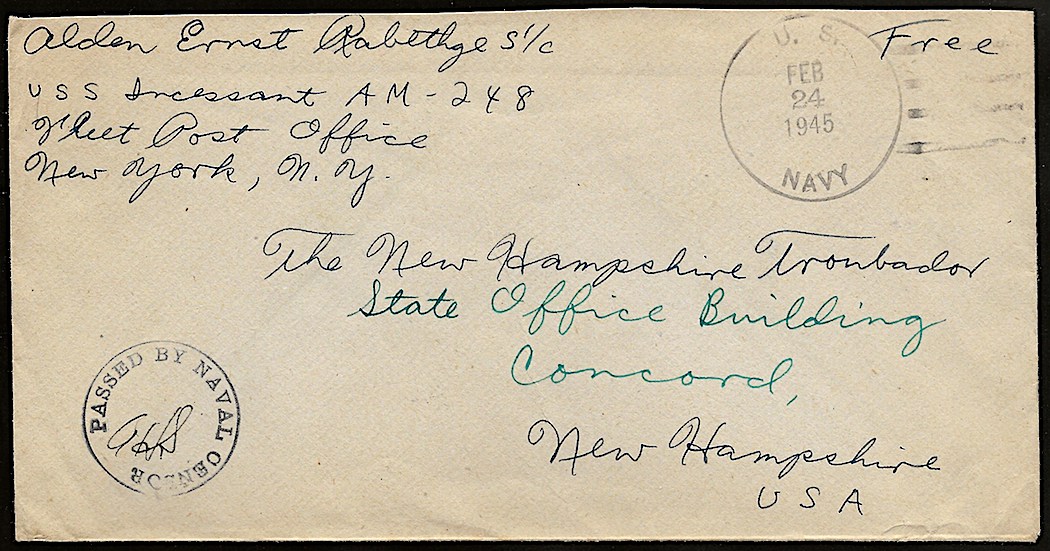 Alden Ernst Rabethge S1/c
USS Incessant AM-248
Fleet Post Office
New York, N.Y.
Free
U. S.
FEB
24
1945
NAVY
The New Hampshire Troubador
State Office Building
Concord,
New Hampshire
USA
PASSED BY NAVAL CENSOR